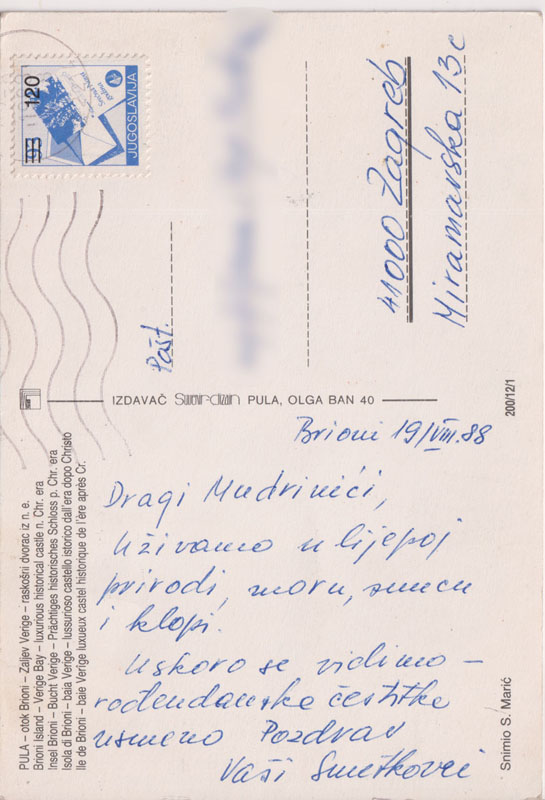 120
JUGOSLAVIJA
Pošt.
41000 Zagreb
Miramarska 13c
IZDAVAČ Suvenir dizajn PULA, OLGA BAN 40
200/12/1
Brioni 19/VIII.88
Dragi Mudrinići,
Uživamo u lijepoj
prirodi, moru, suncu
i klopi.
Uskoro se vidimo –
rođendanske čestitke
usmeno Pozdrav
Vaši Smetkovci
PULA – otok Brioni – Zaljev Verige – raskošni dvorac iz n. e.
Brioni Island – Verige Bay – luxurious historical castle n. Chr. era
Insel Brioni – Bucht Verige – Prächtiges historisches Schloss p. Chr. era
Isola di Brioni – baia Verige – lussurioso castello istorico dall'era dopo Christo
Ile de Brioni – baie Verige luxueux castel historique de l'ère après Cr.
Snimio S. Marić